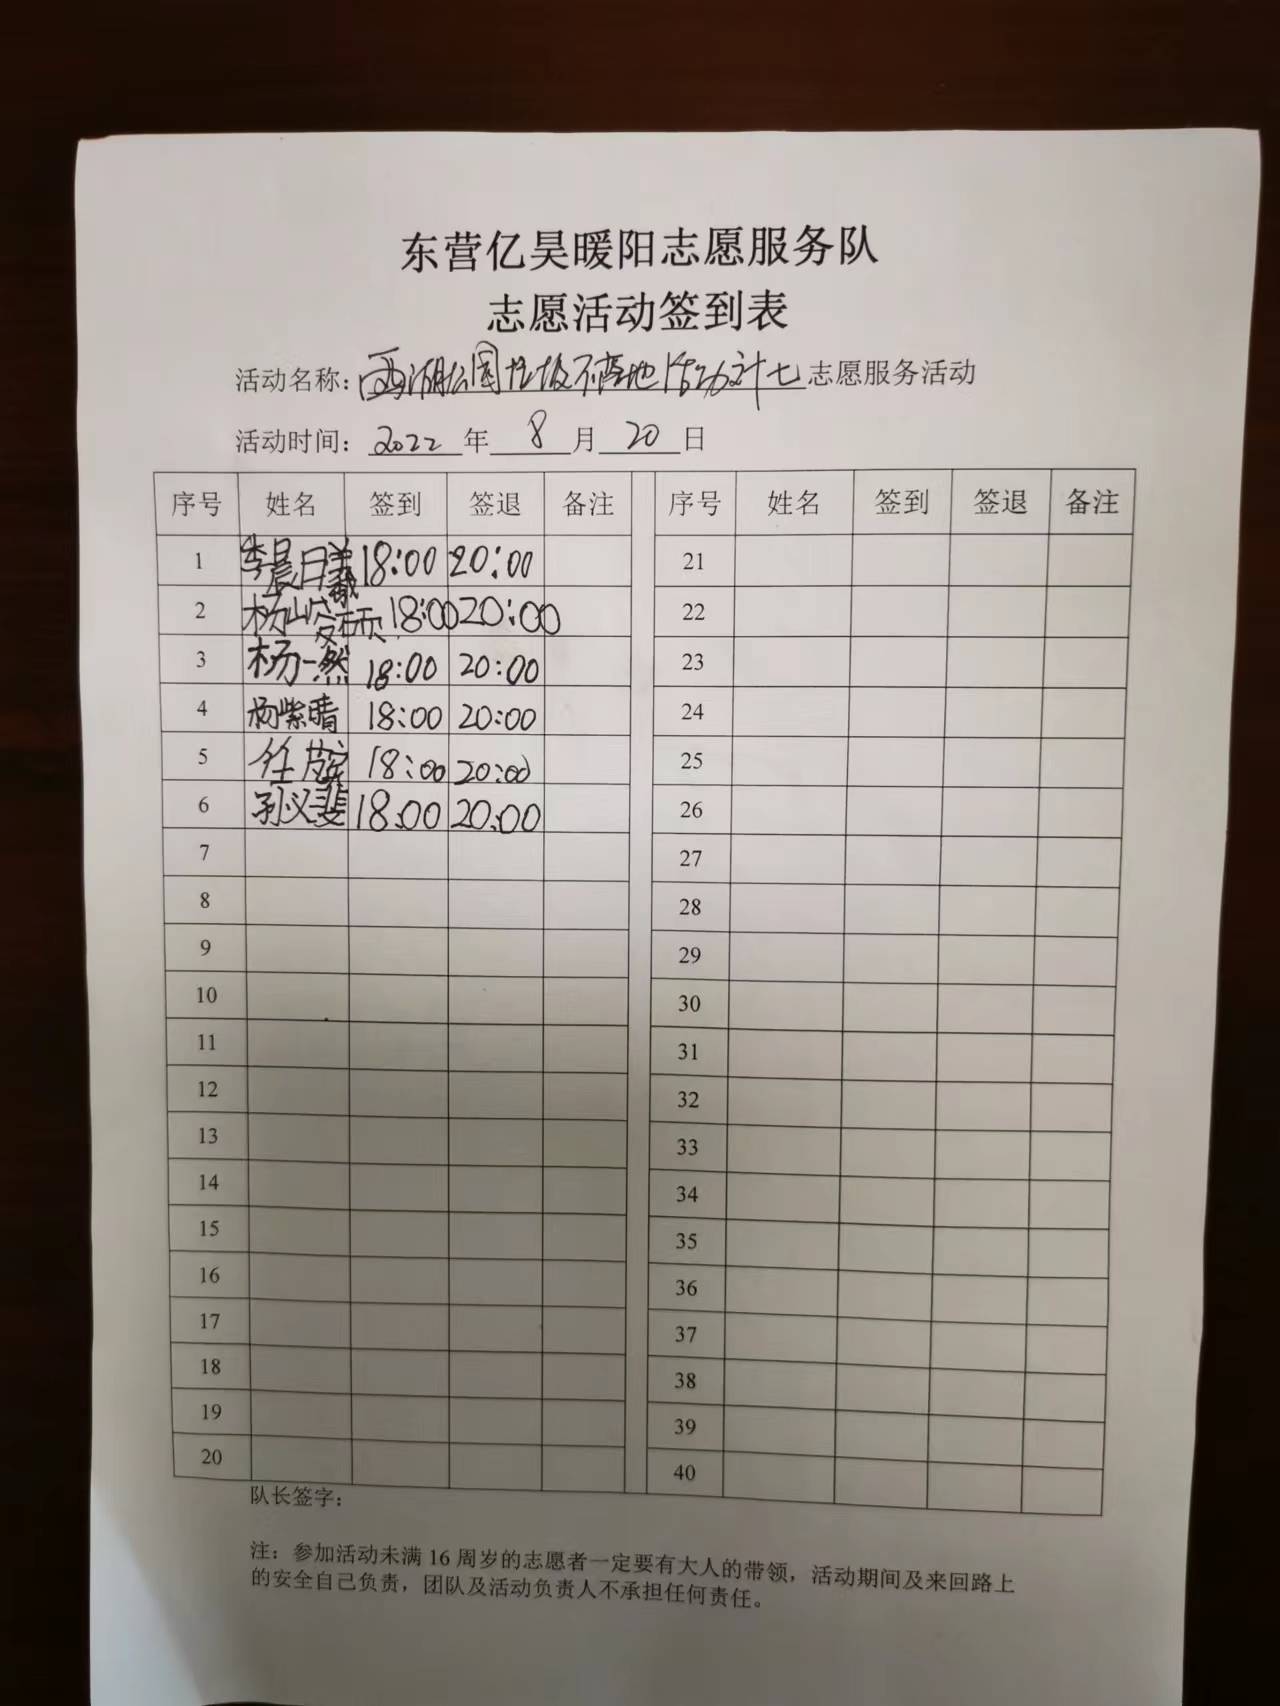 东营亿昊暖阳志愿服务队
志愿活动签到表
活动名称：西湖公园垃圾不落地活动之十七志愿服务活动
活动时间：2022年8月20日
序号 姓名 签到 签退 备注 序号 姓名 签到 签退 备注
1 李晨曦 18:00 20:00 21
2 杨 18:00 20:00 22
3 杨一然 18:00 20:00 23
4 杨紫晴 18:00 20:00 24
5 任 18:00 20:00 25
6 孙义斐 18:00 20:00 26
7 27
8 28
9 29
10 30
11 31
12 32
13 33
14 34
15 35
16 36
17 37
18 38
19 39
20 40
队长签字：
注：参加活动未满16周岁的志愿者一定要有大人的带领，活动期间及来回路上
的安全自己负责，团队及活动负责人不承担任何责任。